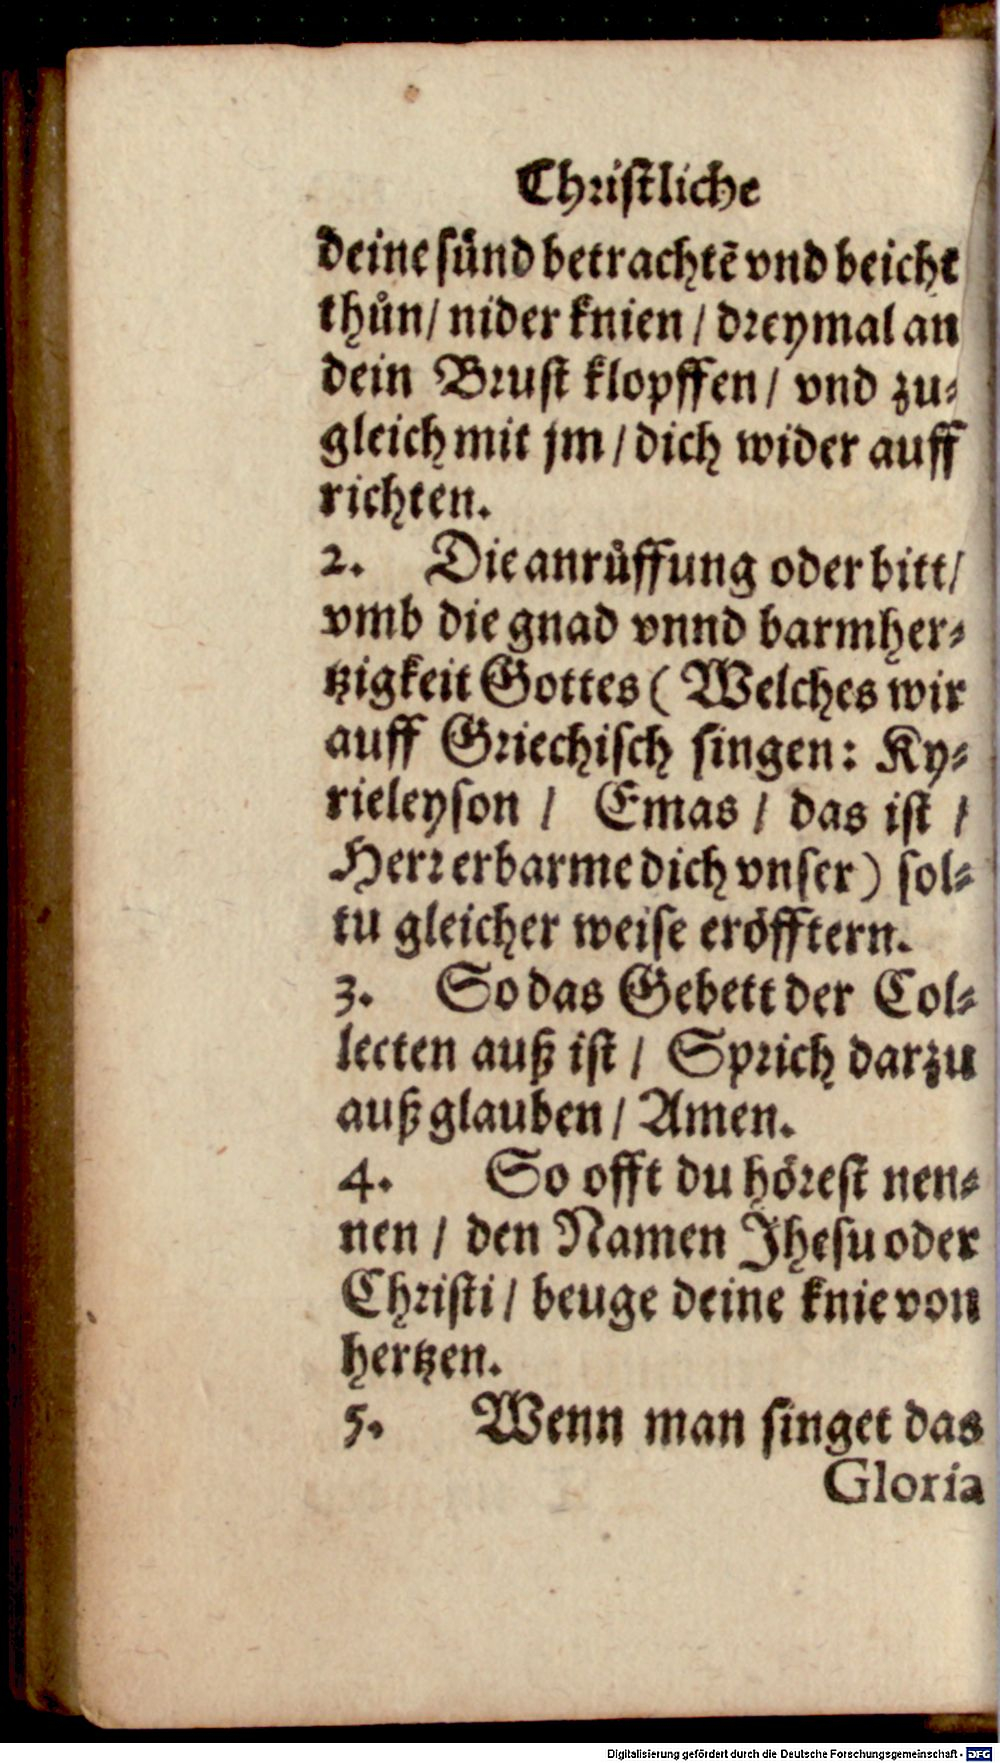 Christliche
deine sünd betrachtē vnd beicht
thůn/ nider knien / dreymal an
dein Brust klopffen/ vnd zu⸗
gleich mit jm / dich wider auff
richten.
2. Die anrůffung oder bitt/
vmb die gnad vnnd barmher⸗
tzigkeit Gottes ( Welches wir
auff Griechisch singen: Ky⸗
rieleyson / Emas / das ist /
Herr erbarme dich vnser) sol⸗
tu gleicher weise eröfftern.
3. So das Gebett der Col⸗
lecten auß ist / Sprich darzu
auß glauben / Amen.
4. So offt du hörest nen⸗
nen / den Namen Jhesu oder
Christi / beuge deine knie von
hertzen.
5. Wenn man singet das
Gloria
Digitalisierung gefördert durch die Deutsche Forschungsgemeinschaft - DFG